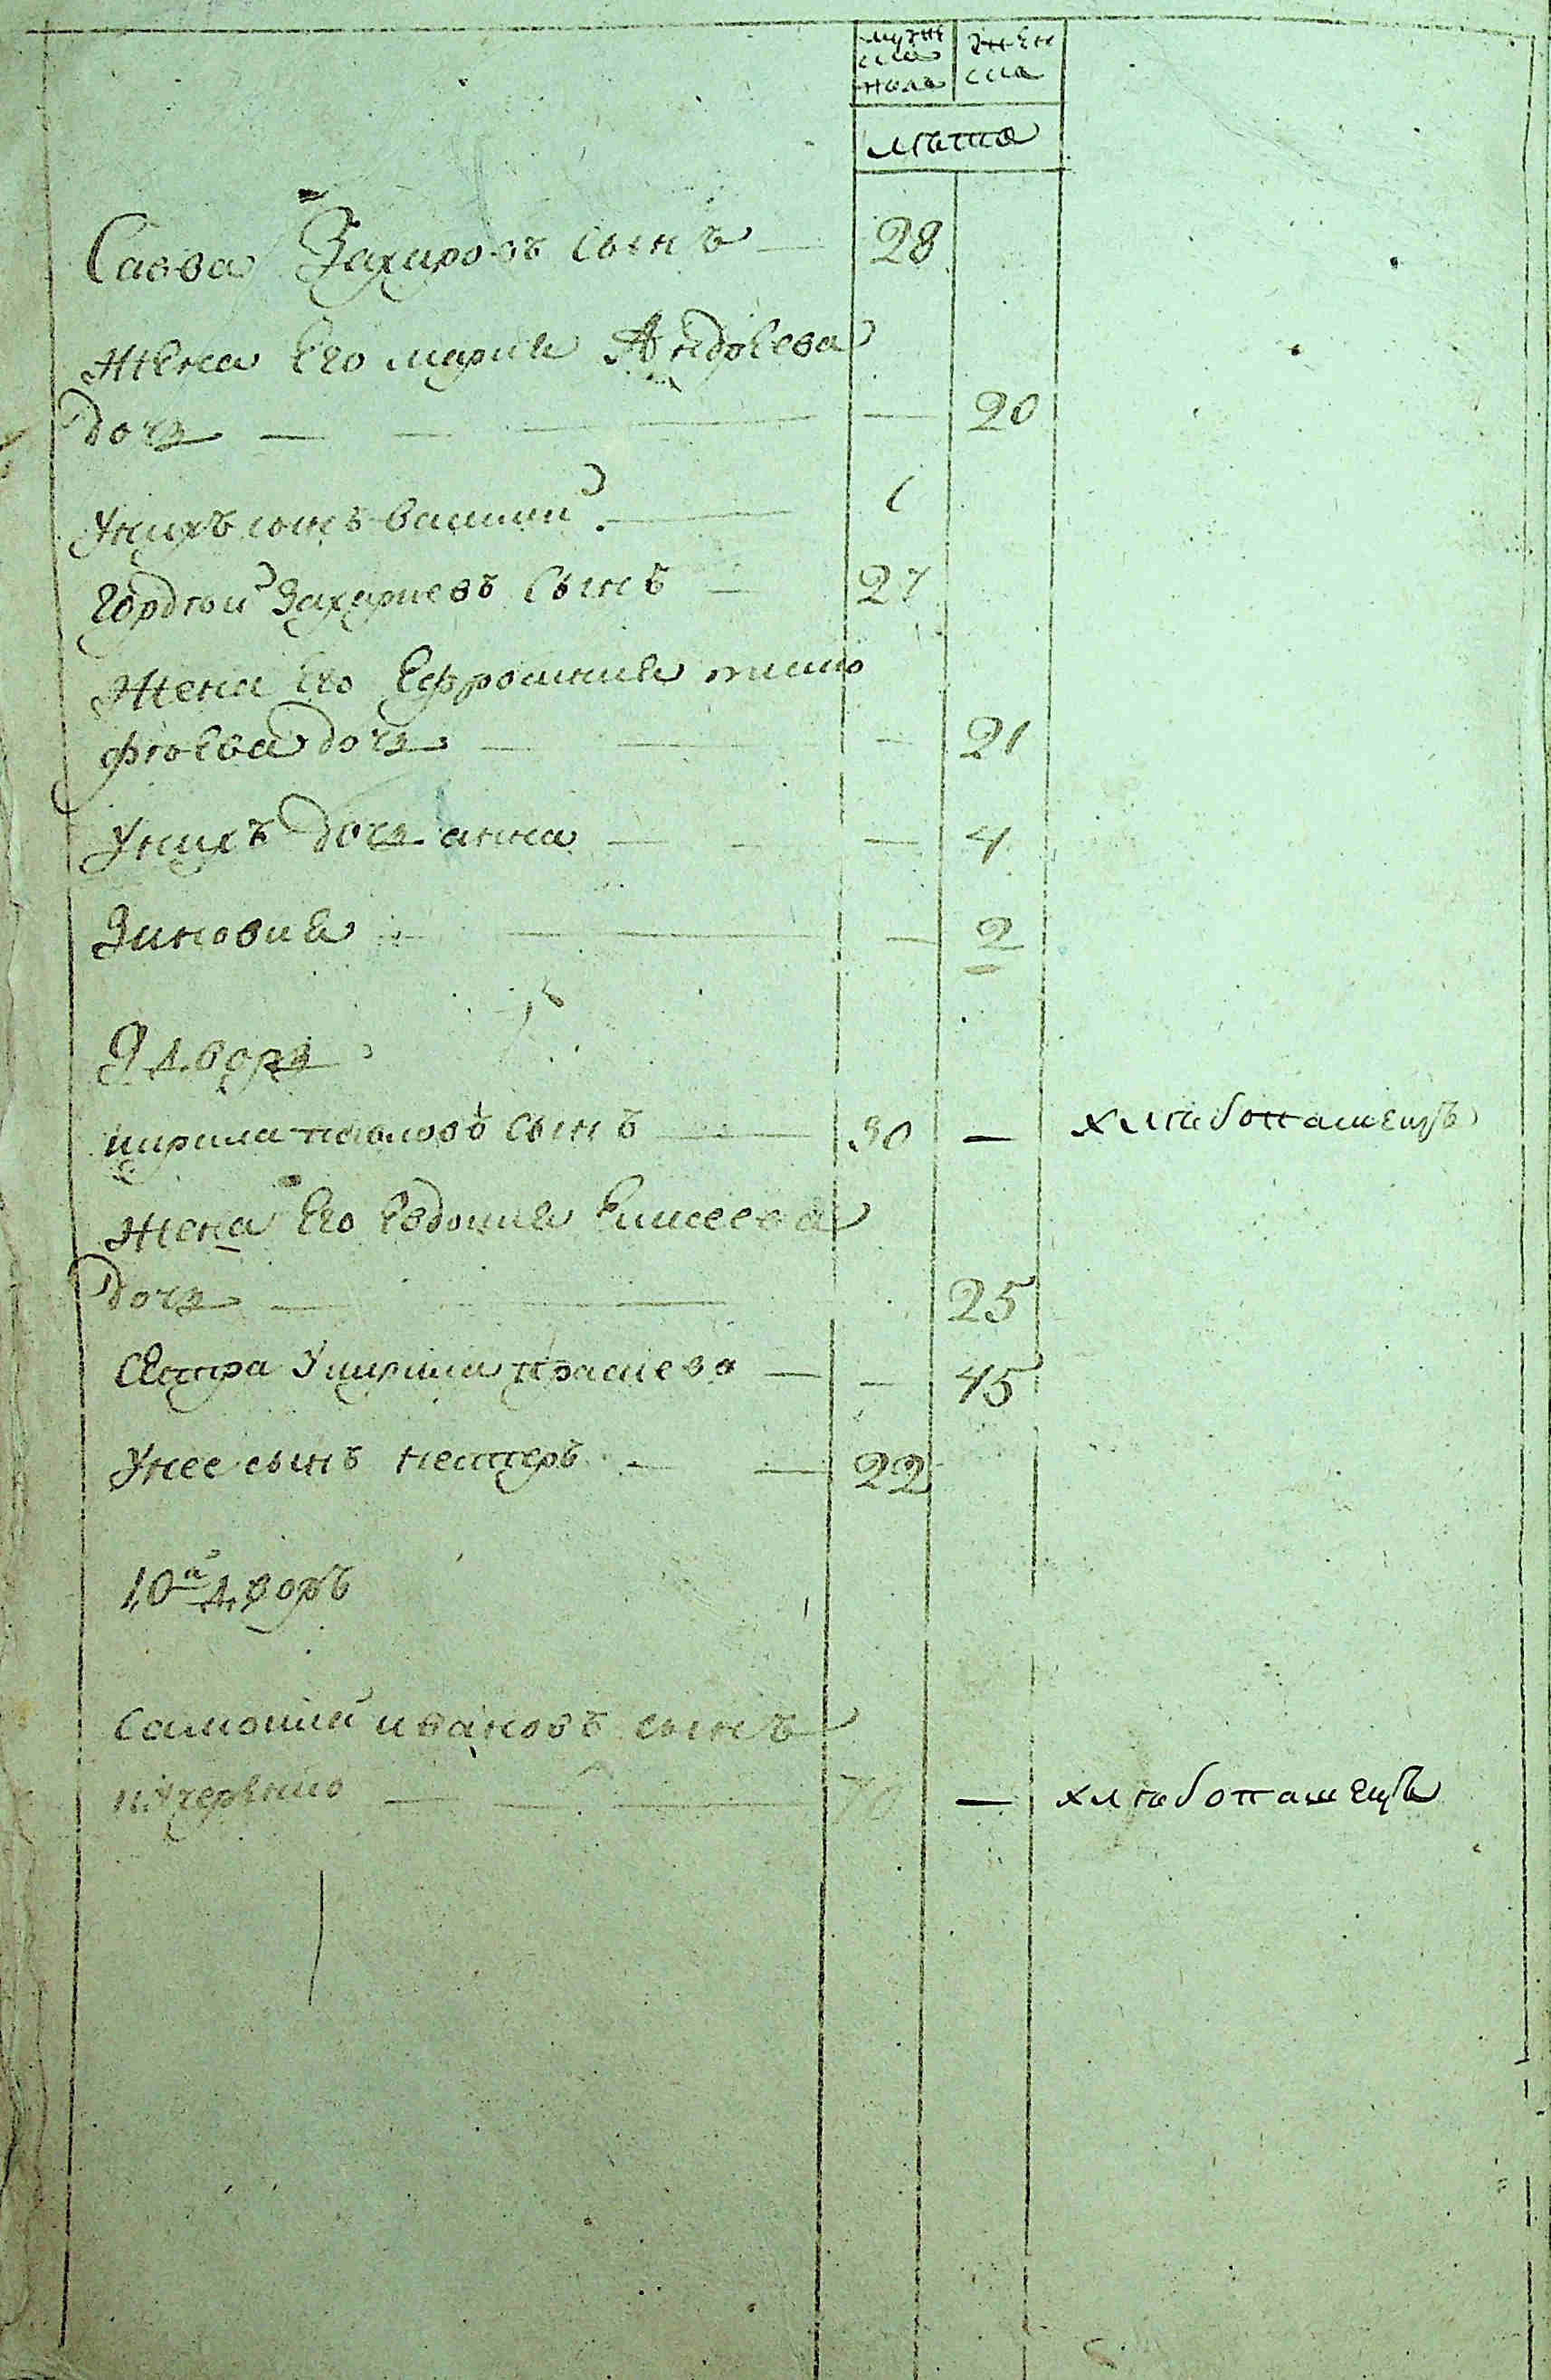 муже ска пола женска
лѣта
Савва Захаровъ сынъ — 28
жена Его мария Андрѣева
дочь — — 20
Унихъ сынъ василий — 1
гордѣй Захариевъ Сынъ — 27
Жена Его Ефросиния тимо
фѣева дочь — — 21
Унихъ дочь анна — — 4
Зиновия — — 2
9 дворъ
кирила павловъ сынъ — 30 — хлѣбопашецъ
жена Его Евдокия Елисеева
дочь — 25
Сестра Укирила — — 45
Унее сынъ нестеръ — 22
10й дворъ
Самойлий ивановъ сынъ
— 70 — хлѣбопашецъ